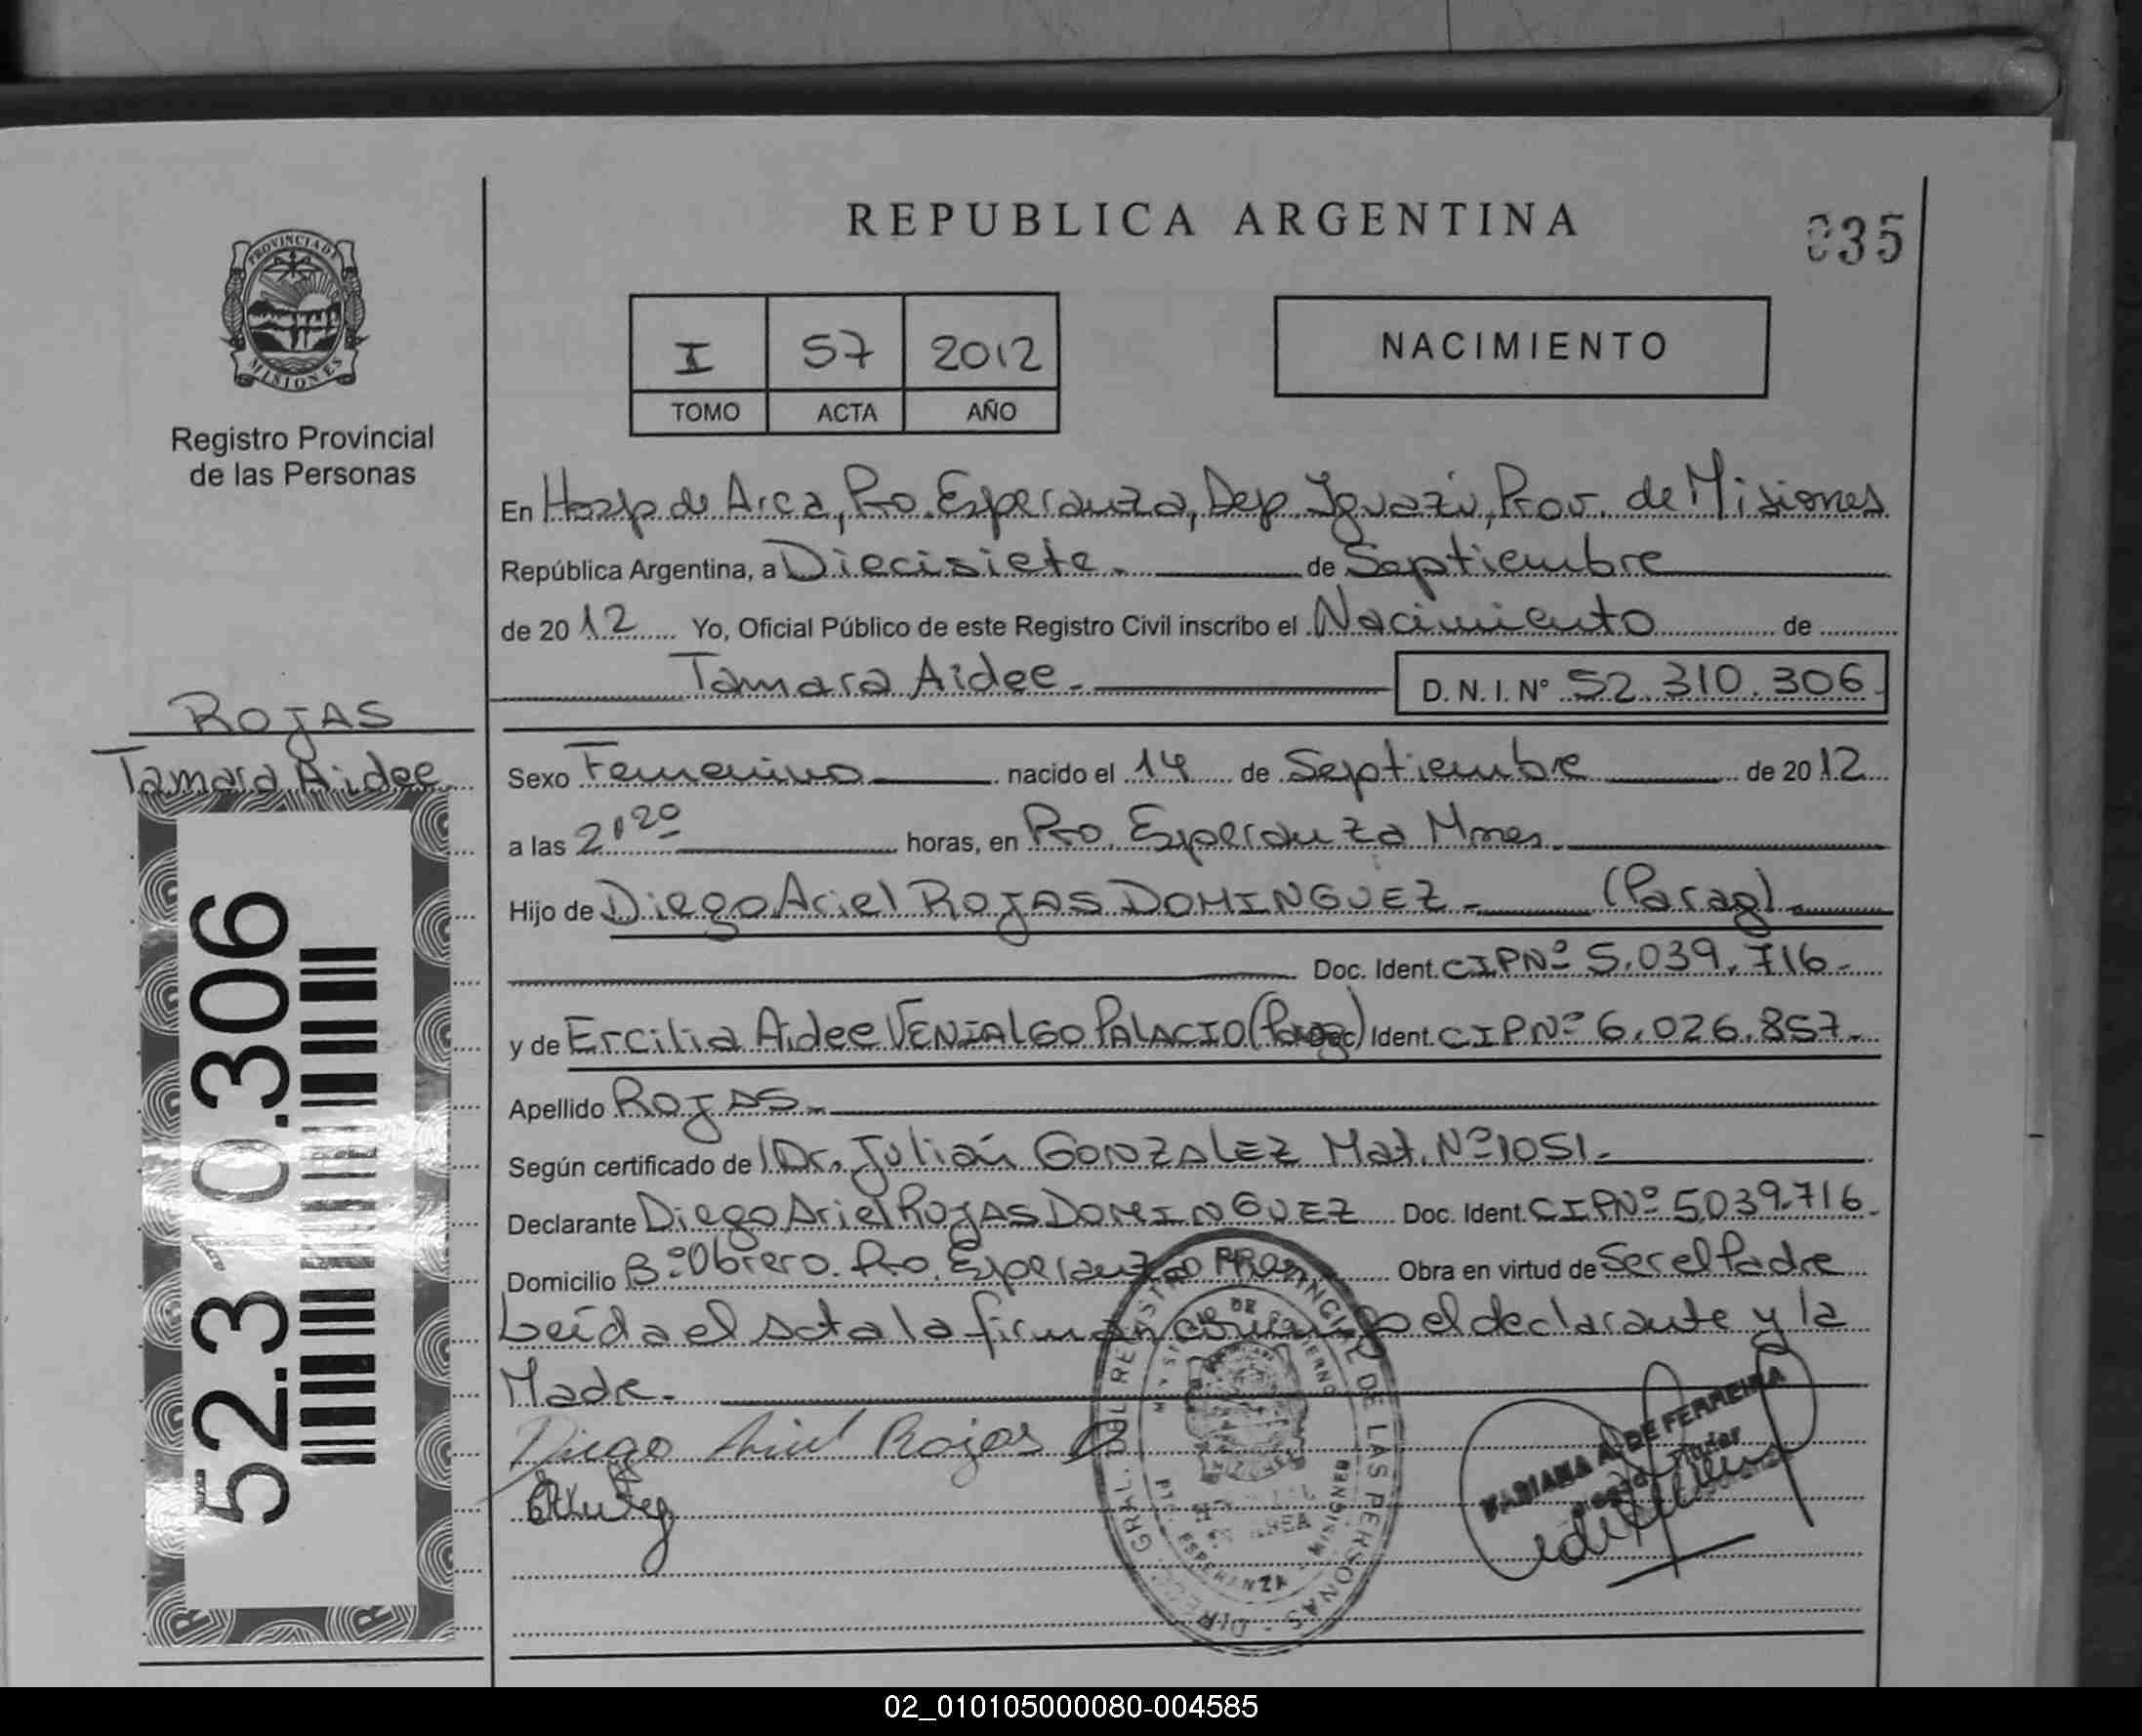 REPUBLICA ARGENTINA
035
PROVINCIA DE
MISIONES
Registro Provincial
de las Personas
I 57 2012
TOMO ACTA AÑO
NACIMIENTO
En Hosp de Area, Pto. Esperanza, Dep Iguazú, Prov. de Misiones
República Argentina, a Diecisiete.- de Septiembre
de 2012 Yo, Oficial Público de este Registro Civil inscribo el Nacimiento de
Tamara Aidee.- D. N. I. Nº 52.310.306.
ROJAS
Tamara Aidee
Sexo Femenino nacido el 14 de Septiembre de 2012
a las 21 20 horas, en Pto. Esperanza Mnes.
Hijo de Diego Ariel ROJAS DOMINGUEZ.- (Parag).-
Doc. Ident. CIPNº 5.039.716.-
y de Ercilia Aidee VENIALGO PALACIO (Parag) Doc. Ident. CIPNº 6.026.857.-
Apellido ROJAS.-
Según certificado de Dr. Julián GONZALEZ Mat. Nº 1051.-
Declarante Diego Ariel ROJAS DOMINGUEZ Doc. Ident. CIPNº 5.039.716.
Domicilio Bº Obrero. Pto. Esperanza Obra en virtud de Ser el Padre
Leída el acta la firman conmigo el declarante y la
Madre.-
Diego Ariel Rojas D
52.310.306
DIREC. GRAL. DEL REGISTRO PROVINCIAL DE LAS PERSONAS
DE GOBIERNO
ESPERANZA MISIONES
FABIANA A. DE FERREIRA
Titular
02_010105000080-004585